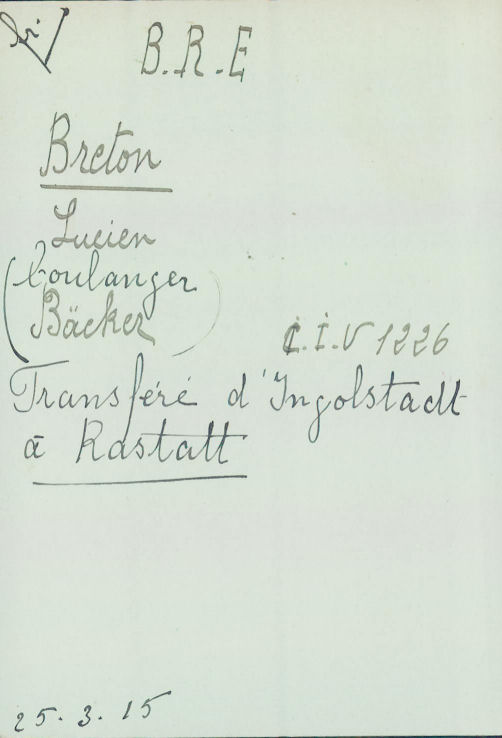 B.R.E
Breton
Lucien
(boulanger
Bäcker)
C.I.V 1226
Transféré d'Ingolstadt
à Rastatt
25.3.15